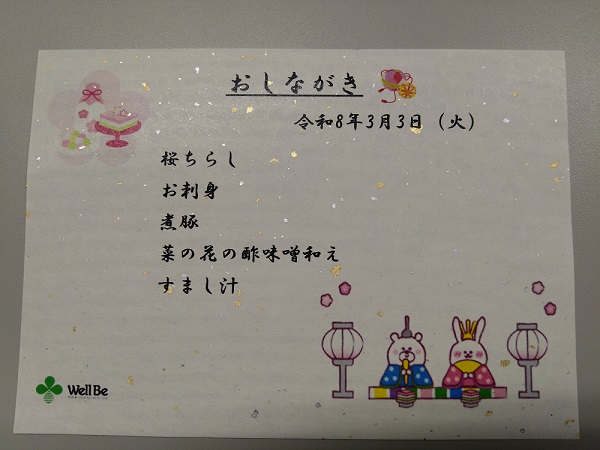 おしながき
令和8年3月3日（火）
桜ちらし
お刺身
煮豚
菜の花の酢味噌和え
すまし汁
WellBe